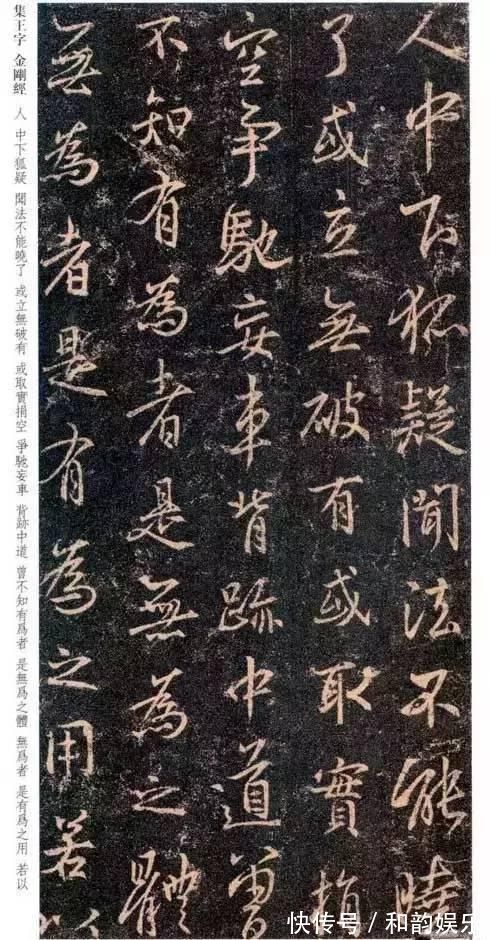 人中下狐疑聞法不能曉
了或立無破有或取實捐
空争馳妄車背跡中道曾
不知有為者是無為之體
無為者是有為之用若以
集王字 金剛經 人 中下狐疑 聞法不能曉了 或立無破有 或取實捐空 爭馳妄車 背跡中道 曾不知有爲者 是無爲之體 無爲者 是有爲之用 若以
快传号 / 和韵娱乐